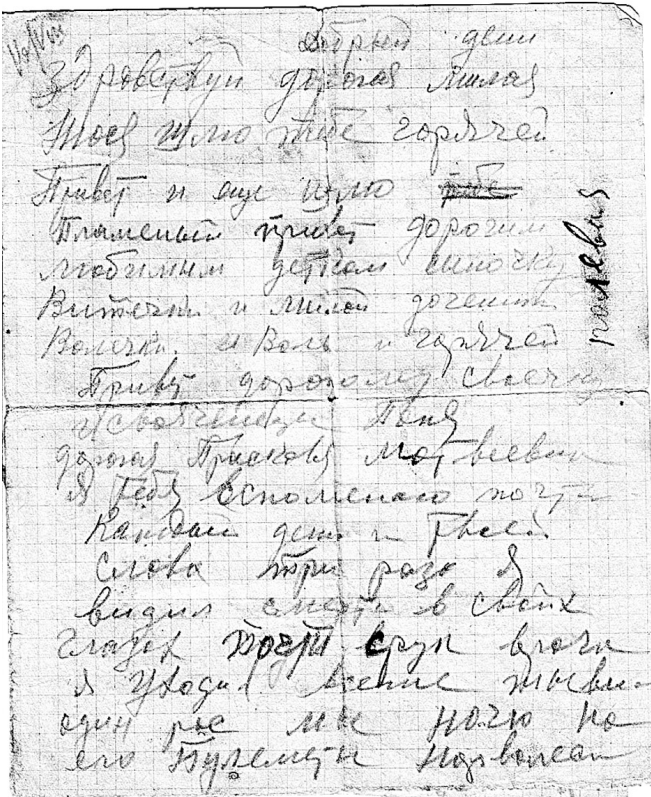 Добрый день
Здровствуй дорогая милая
Тося шлю тебе горячей
Привет и еще шлю тебе
Пламеный привет дорогим
любимым деткам сыночку
Витечки и милой доченьки
Волечки. и Воль и горячей
Привет дорогому своечку
и свояченици Поня
дорогая Прасковя Мотвеевна
Я тебя вспоменаю почти
Каждый день и твоей
слова три раза я
видил смерть в своих
глазах Почти срук врага
я уходил
один рас мы ночю на
его Пулеметы
полевая